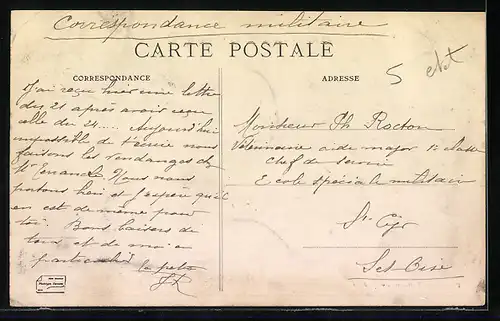 Correspondance militaire
CARTE POSTALE
CORRESPONDANCE
ADRESSE
5
J'ai reçu hier une lettre
du 21 après avoir reçu
celle du 24.... Aujourd'hui
impossible de t'écrire nous
faisons les vendanges chez
Mr Nous nous
portons bien et j'espère qu'il
en est de même pour
toi. Bons baisers de
tous et de moi en
particulier
la petite
Monsieur Th Rocton
Vétérinaire aide major 1e classe
chef de service
Ecole spéciale militaire
St Cyr
Set Oise